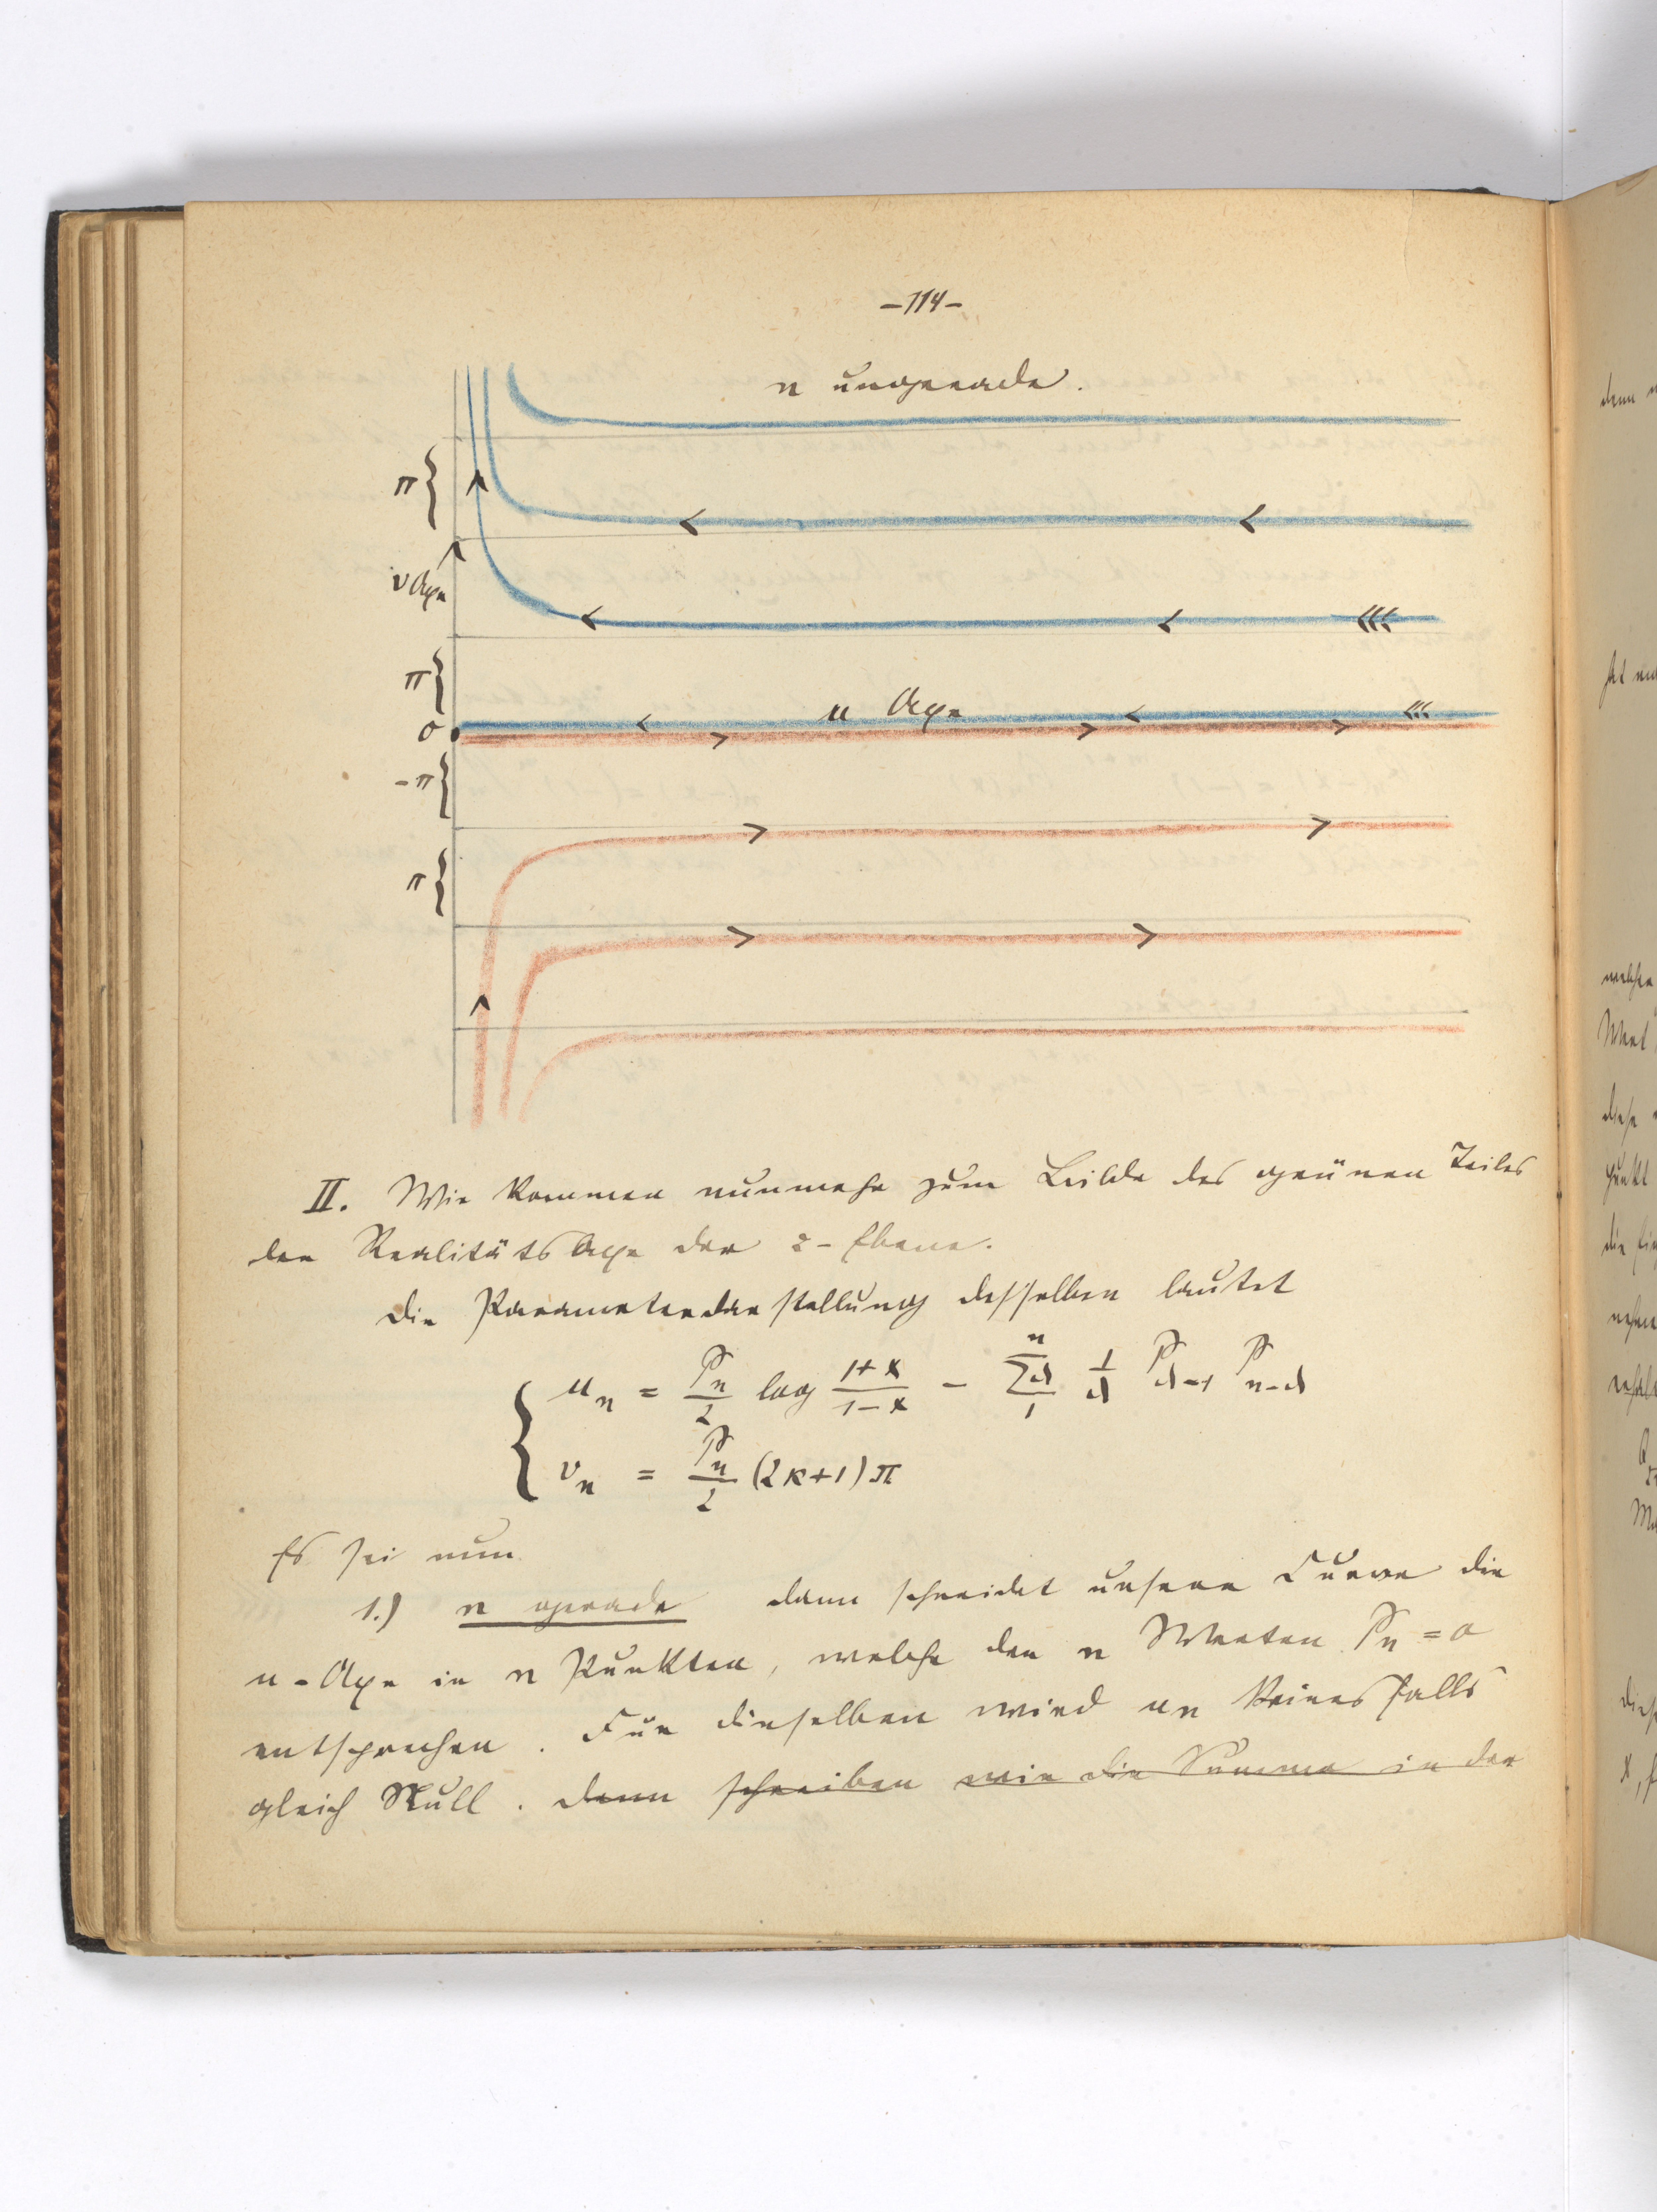 – 114 –
n ungerade.
π {
v Axe
π {
u Axe
0
– π {
π {
II. Wir kommen nunmehr zum Bilde des grünen Teiles
der Realitäts Axe der z-Ebene.
Die Parameterdarstellung desselben lautet
{ u_n = P_n/2 log (1+x)/(1–x) – Σ_1^n 1/λ P_{λ-1} P_{n-λ}
v_n = P_n/2 (2κ+1)π
Es sei nun
1.) n gerade dann schneidet unsere Curve die
u-Axe in n Punkten, welche den n Werten P_n = 0
entsprechen. Für dieselben wird u_n keinesfalls
gleich Null. denn schreiben wir die Summe in der